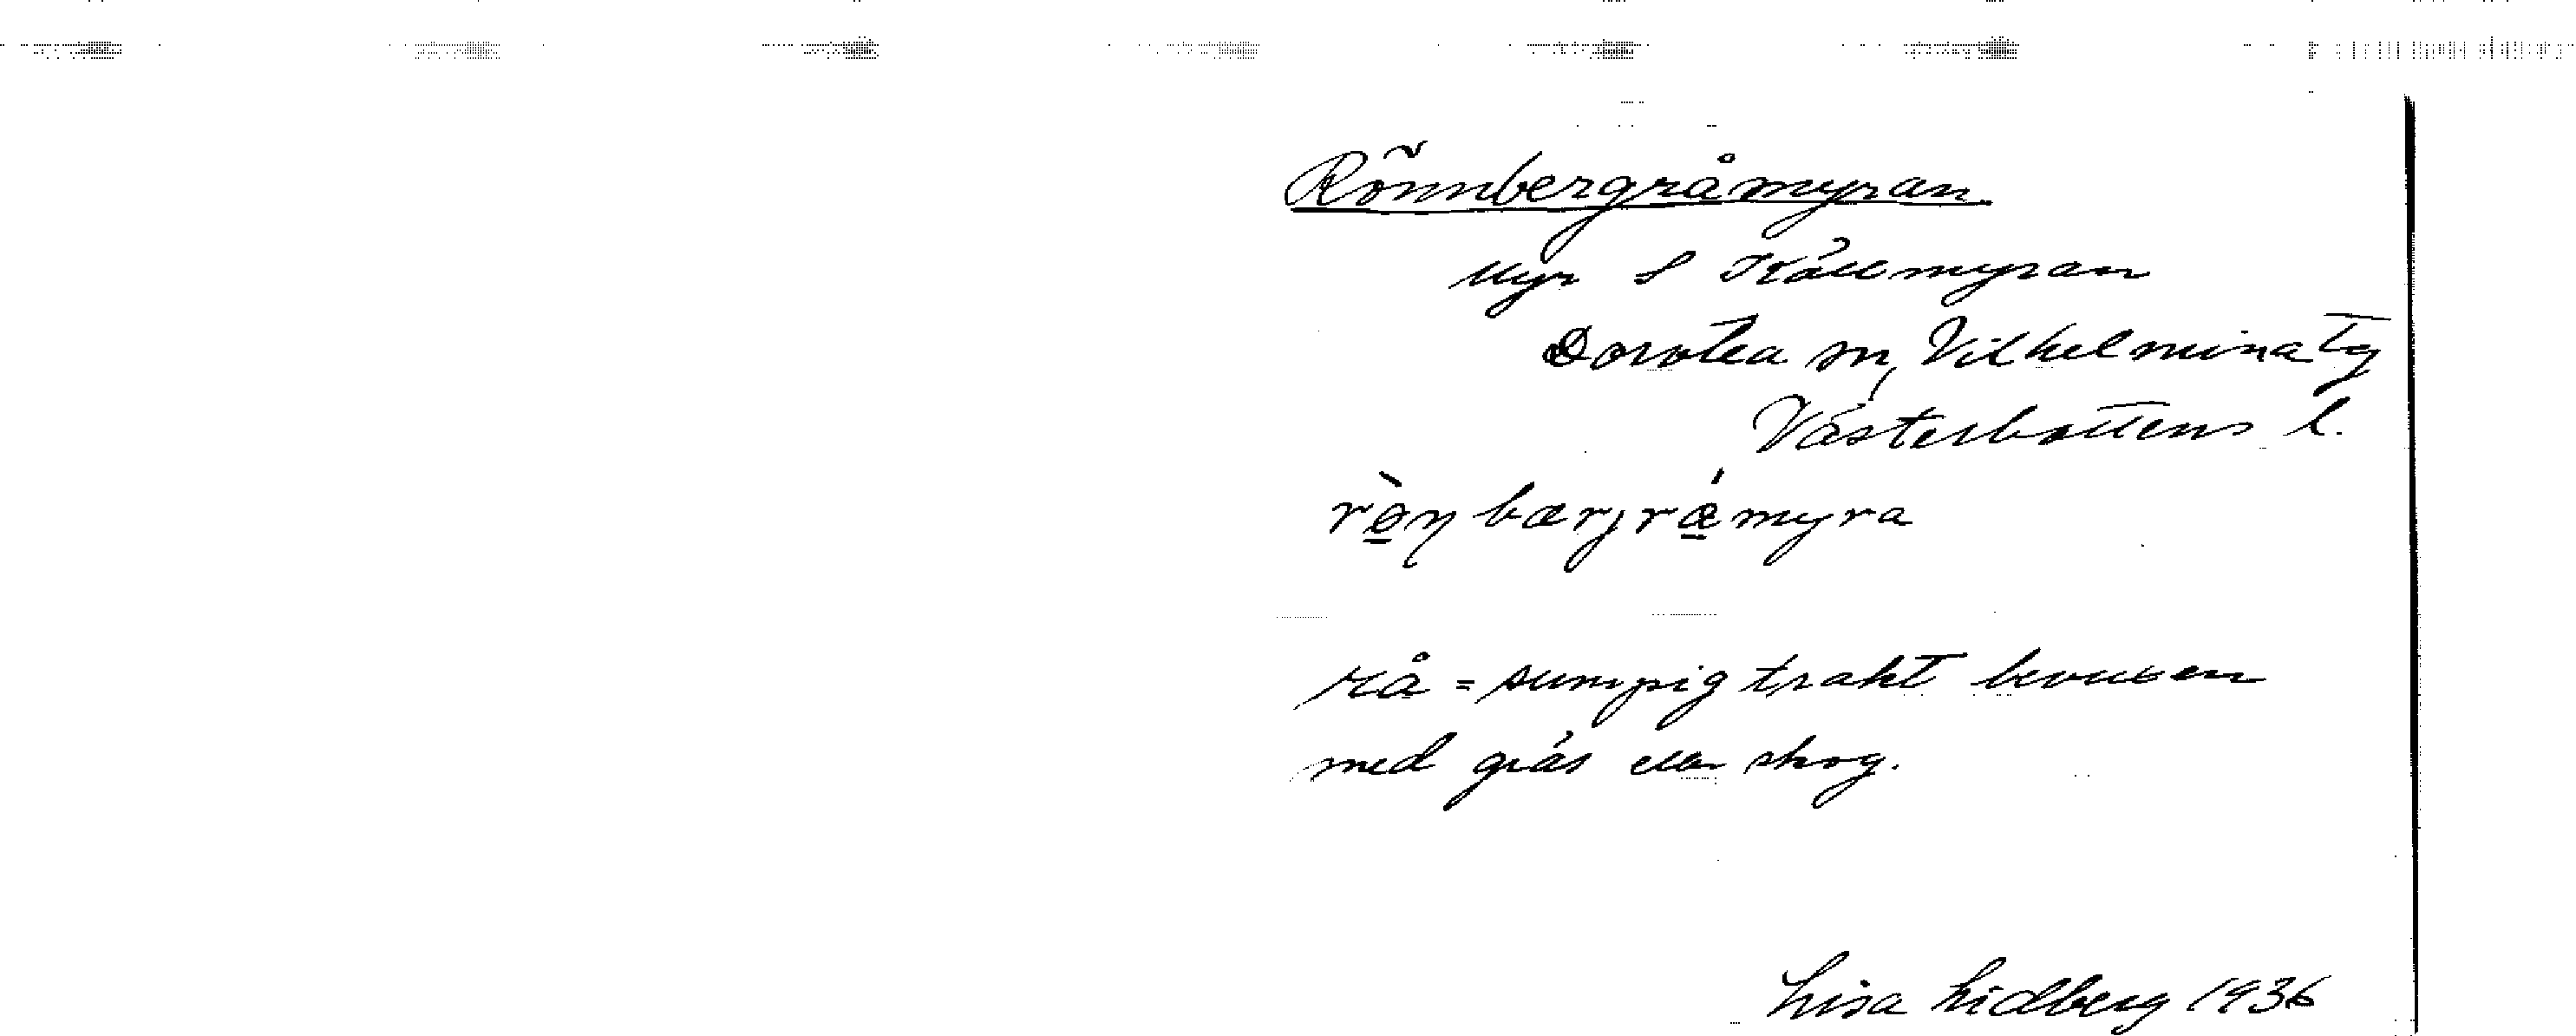 Rönnbergråmyran.
Myr S Källmyran
Dorotea sn, Vilhelmina tg
Västerbottens l.
rö̀ŋbærjrǽmyra
rå = sumpig trakt bevuxen
med gräs eller skog.
Lisa Lidberg 1936